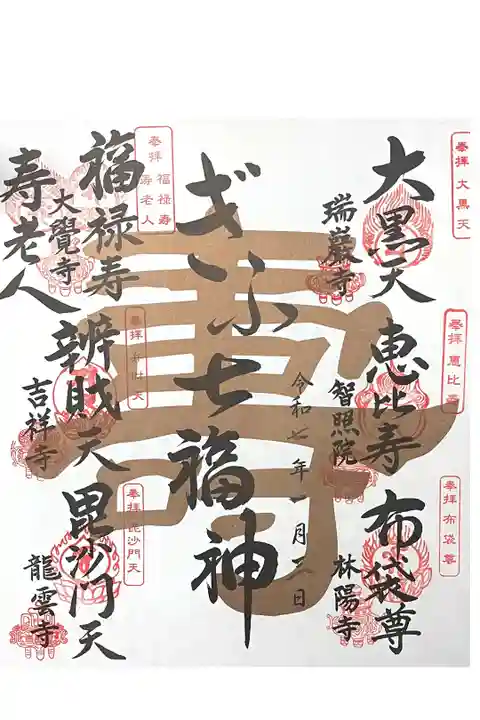 奉拝 大黒天
大黒天
瑞巌寺
奉拝 恵比寿
恵比寿
智照院
奉拝 布袋尊
布袋尊
林陽寺
令和七年一月三日
ぎふ七福神
壽
奉拝 福禄寿 寿老人
福禄寿
寿老人
大覺寺
奉拝 弁財天
辨財天
吉祥寺
奉拝 毘沙門天
毘沙門天
龍雲寺